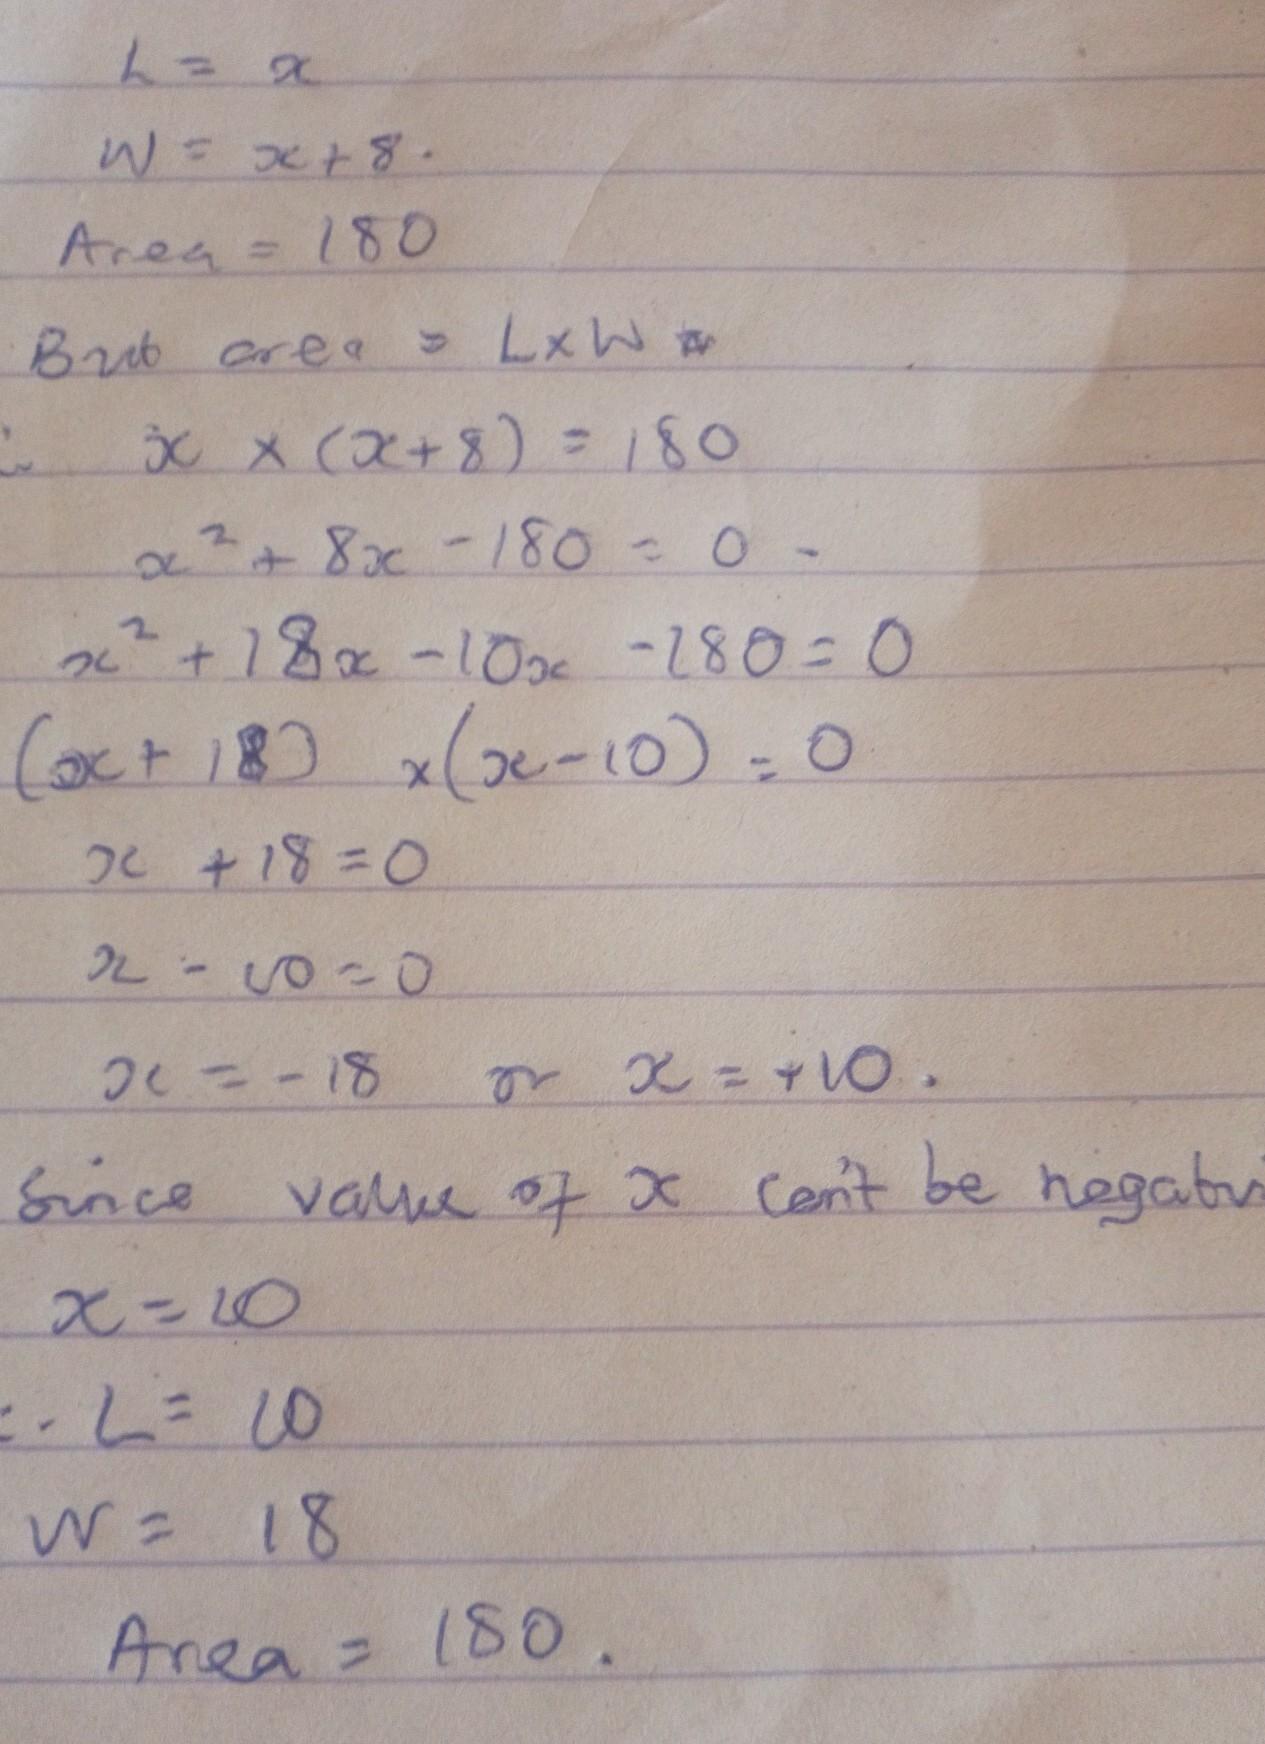 L = x
W = x + 8.
Area = 180
But area = L x W =
∴ x × (x+8) = 180
x² + 8x - 180 = 0 -
x² + 18x - 10x - 180 = 0
(x + 18) x (x - 10) = 0
x + 18 = 0
x - 10 = 0
x = - 18 or x = +10.
Since value of x can't be negativ
x = 10
∴ L = 10
W = 18
Area = 180.